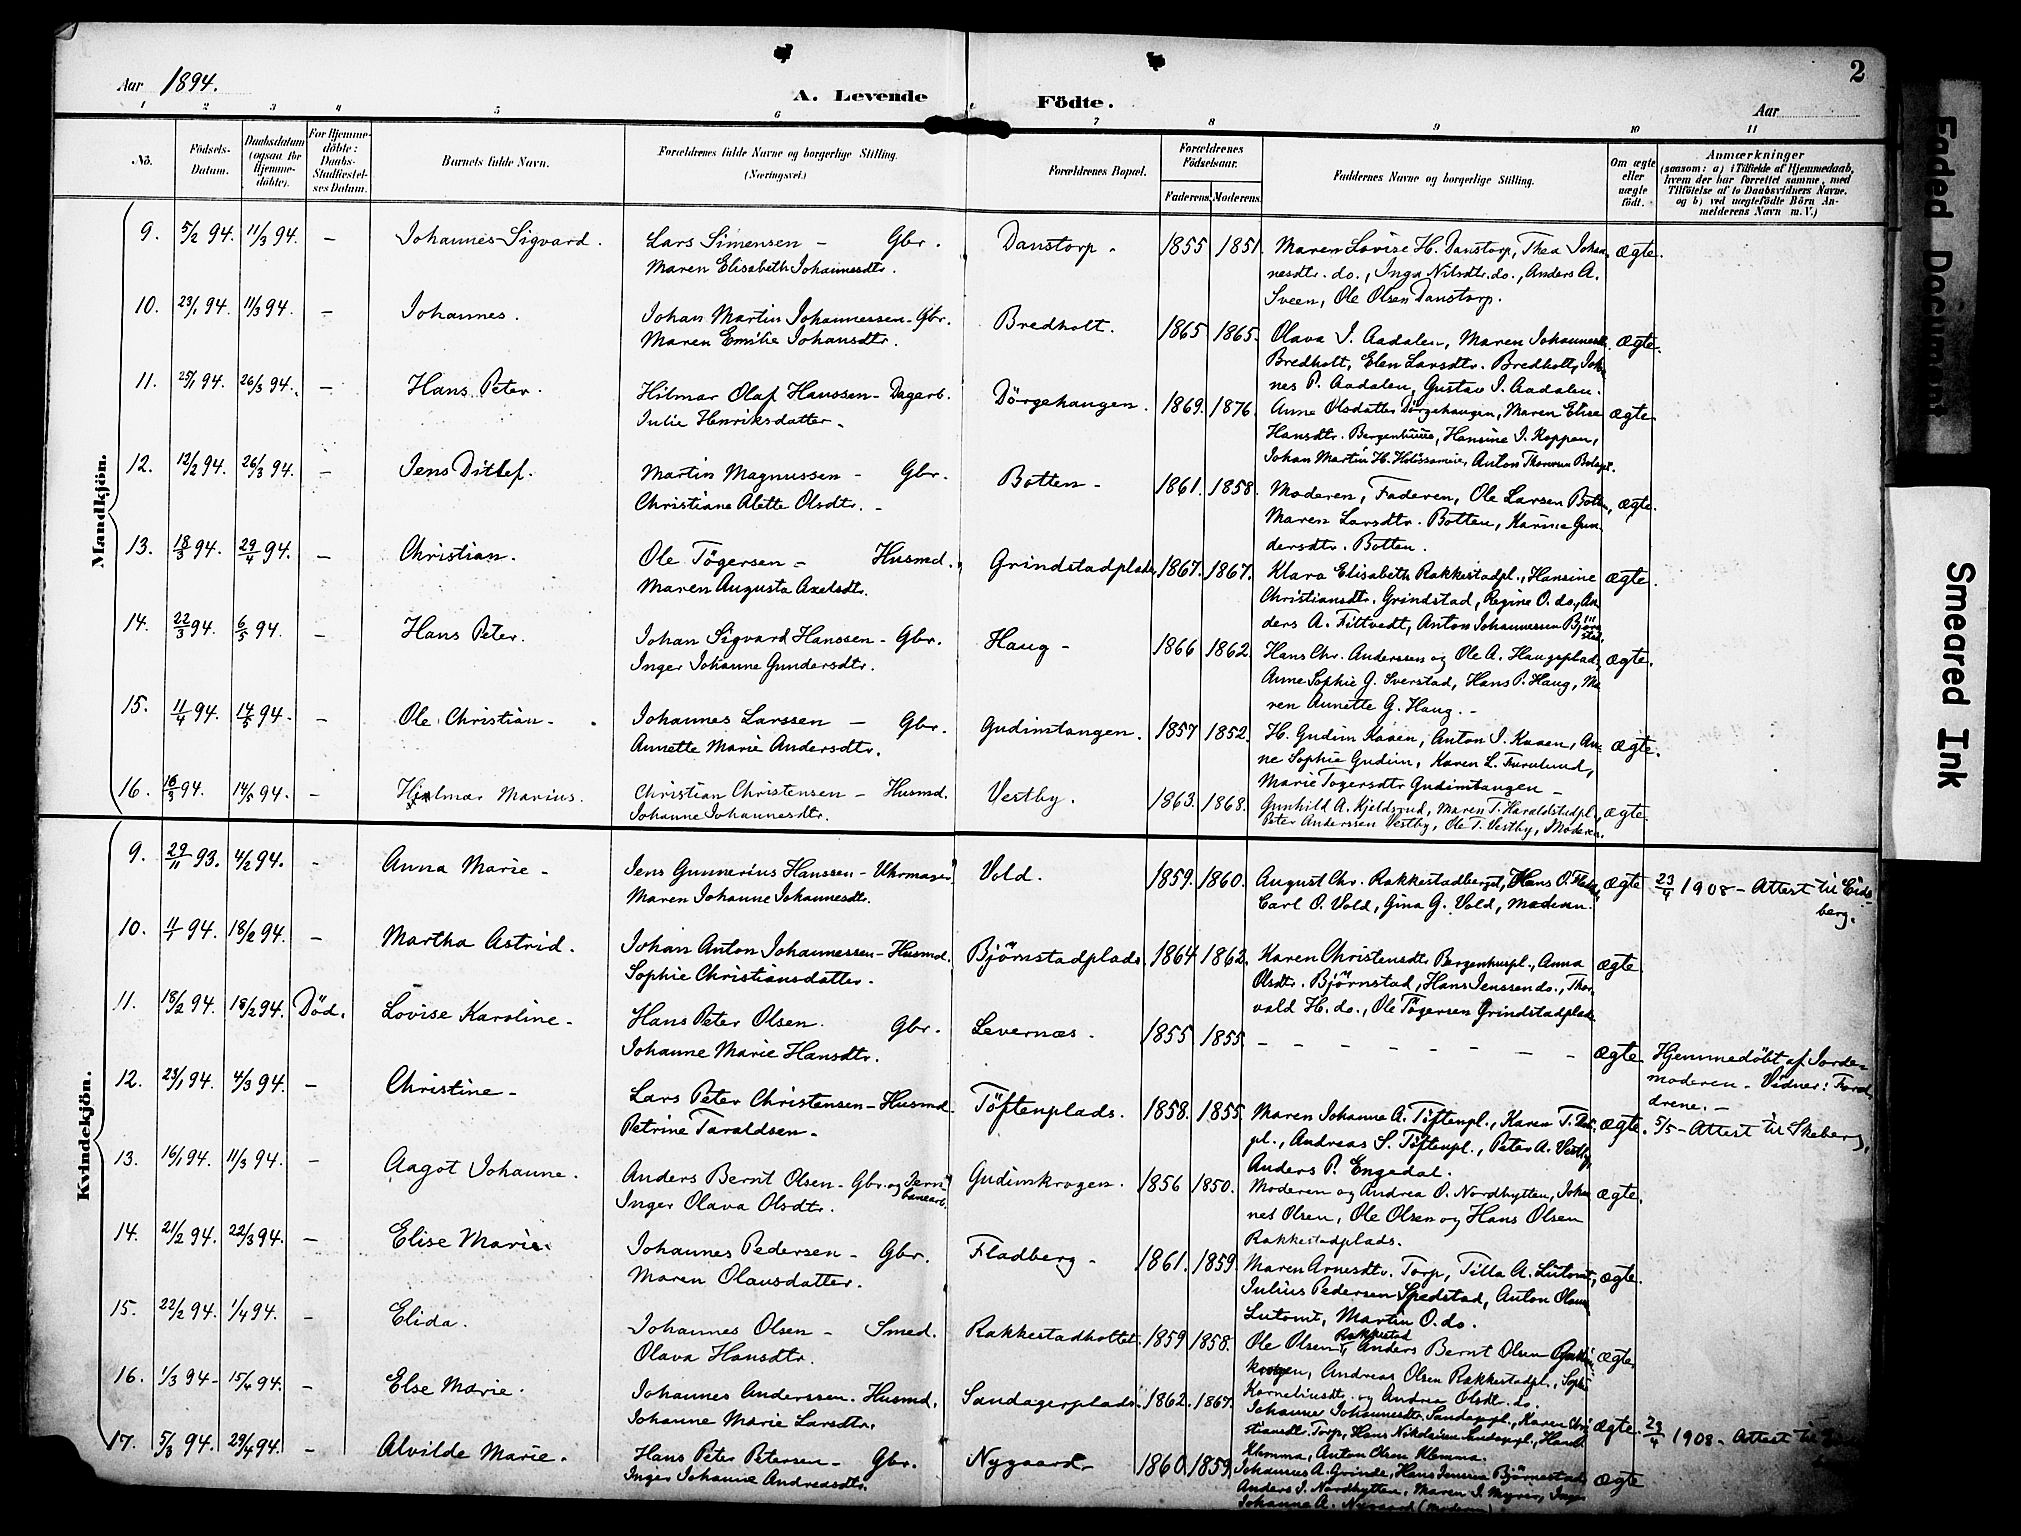 Aar 1894.
A. Levende Födte.
Aar
2
1 2 3 4 5 6 7 8 9 10 11
Nò.
Födsels-Datum.
Daabsdatum (ogsaa for Hjemme-döbte).
For Hjemme-döbte: Daabs-Stadfæstel-ses Datum.
Barnets fulde Navn.
Forældrenes fulde Navne og borgerlige Stilling. (Næringsvei.)
Forældrenes Bopæl.
Forældrenes Födselsaar.
Faderens. Moderens.
Faddernes Navne og borgerlige Stilling.
Om ægte eller uægte födt.
Anmærkninger
(saasom: a) i Tilfælde af Hjemmedaab, hvem der har forrettet samme, med Tilföielse af to Daabsvidners Navne. og b) ved uægtefödte Börn An-melderens Navn m. V.)
Mandkjön.
9. 5/2 94. 11/3 94. – Johannes Sigvard. Lars Simensen – Gbr. Danstorp – 1855 1851. Maren Lovise H. Danstorp, Thea Johan ægte.
Maren Elisabeth Johannesdtr. nesdtr. do., Inga Nilsdtr. do., Anders A.
Sveen, Ole Olsen Danstorp.
10. 23/1 94. 11/3 94. – Johannes. Johan Martin Johannessen – Gbr. Bredholt. 1865 1865. Olava I. Aadalen, Maren Johannesd. ægte.
Maren Emilie Johansdtr. Bredholt, Elen Larsdtr. Bredholt, Joh
nes P. Aadalen, Gustav I. Aadalen.
11. 25/1 94. 26/3 94. – Hans Peter. Hilmar Olaf Hanssen – Dagarb. Dörgehaugen. 1869. 1876. Anne Olsdatter Dörgehaugen, Maren Elise ægte.
Julie Henriksdatter – Hansdtr. Bergenhuus, Hansine I. Koppen,
Johan Martin H. Anton
12. 12/2 94. 26/3 94. – Jens Ditlef. Martin Magnussen – Gbr. Botten – 1861. 1858. Moderen, Faderen, Ole Larsen Botten, ægte.
Christiane Alette Olsdtr. – Maren Larsdtr. Botten, Karine Gun
dersdtr. Botten.
13. 18/3 94. 29/4 94. – Christian. Ole Tögersen – Husmd. Grindstadplads 1867. 1867. Klara Elisabeth Rakkestadpl., Hansine ægte.
Maren Augusta Axelsdtr. Christiansdtr. Grindstad, Regine O. do., An
ders A. Fittvedt, Anton Johannessen Björnstad.
14. 22/3 94. 6/5 94. – Hans Peter. Johan Sigvard Hanssen – Gbr. Haug – 1866 1862. Hans Chr. Anderssen og Ole A. Haugsplads, ægte.
Inger Johanne Gundersdtr. Anne Sophie G. Sverstad, Hans P. Haug, Ma
ren Annette G. Haug. –
15. 11/4 94. 14/5 94. – Ole Christian – Johannes Larssen – Gbr. Gudimtangen. 1857 1852. H. Gudim Kaaen, Anton I. Kaaen, An ægte.
Annette Marie Andersdtr. ne Sophie Gudim, Karen L. Furulund,
Marie Togersdtr Gudimtangen –
16. 16/3 94. 14/5 94. – Hjalmar Marius. Christian Christensen – Husmd. Vestby. 1863. 1868. Gunhild A. Kjeldsrud, Maren T. Haraldstadpl., ægte.
Johanne Johannesdtr. Peter Anderssen Vestby, Ole T. Vestby, Moderen.
Kvindekjön.
9. 29/11 93. 4/2 94. – Anna Marie – Jens Gunnerius Hanssen – Uhrmager. Vold. 1859. 1860. August Chr. Rakkestadberget, Hans O. ægte 23/4 1908 – Attest til Eids
Maren Johanne Johannesdtr. Carl O. Vold, Gina G. Vold, Moderen. berg.
10. 1/1 94. 18/2 94. – Martha Astrid. Johan Anton Johannessen – Husmd. Björnstadplads. 1864 1862. Karen Christensdtr Bergenhuspl., Anna ægte
Sophie Christiansdatter. Olsdtr. Björnstad, Hans Jenssen do., Thor
vald H. do., Ole Tögersen Grindstadplads
11. 18/2 94. 18/2 94. Död. Lovise Karoline – Hans Peter Olsen. Gbr. Levernæs – 1855 1855. – – – – – – – ægte Hjemmedöbt af Jorde-
Johanne Marie Hansdtr. moderen – Vidner: Foræl
drene. –
12. 23/1 94. 4/3 94. – Christine – Lars Peter Christensen – Husmd. Töftenplads. 1858. 1855. Maren Johanne A. Töftenpl., Karen T. ægte. 5/5 – Attest til Skeberg.
Petrine Taraldsen – pl., Andreas S. Töftenpl., Peter A. Vestby
Anders P. Engedal.
13. 16/1 94. 11/3 94. – Aagot Johanne. Anders Bernt Olsen – Gbr. og Jern- Gudimkrogen. 1856 1850. Moderen og Andrea O. Nordhytten, Johan ægte.
Inger Olava Olsdtr. banearb. nes Olsen, Ole Olsen og Hans Olsen
Rakkestadplads.
14. 21/2 94. 22/3 94. – Elise Marie. Johannes Pedersen – Gbr. Fladberg – 1861. 1859. Maren Arnesdtr. Torp, Tilla A. Lutomt, ægte.
Maren Olausdatter. Julius Pedersen Spedstad, Anton Olaus
Lutomt, Martin O. do.
15. 22/2 94. 1/4 94. – Elida. Johannes Olsen – Smed. Rakkestadholtet. 1859 1858. Ole Olsen Rakkestad, Anders Bernt Olsen Gudim ægte.
Olava Hansdtr. krogen, Andreas Olsen Rakkestadpl., Sophie
Korneliusdtr. og Andrea Olsdtr. do.
16. 1/3 94 – 15/4 94. – Else Marie. Johannes Anderssen – Husmd. Sandagerplads. 1862. 1867. Johanne Johannesdtr. Sandagerpl., Karen Chri ægte. 23/4 1908 – Attest til
Johanne Marie Larsdtr. stiansdtr. Torp, Hans Nikolaisen Sandagerpl., Hans
Klemma, Anton Olsen Klemma.
17. 5/3 94. 29/4 94. – Alvilde Marie. Hans Peter Petersen – Gbr. Nygaard – 1860. 1859. Johannes A. Grinde, Hans Jensen Björnestad, ægte
Inger Johanne Andreasdtr. Anders I. Nordhytten, Maren I. Myrer, Inger
Johanne A. Nygaard (Moderen)
Faded Document
Smeared Ink